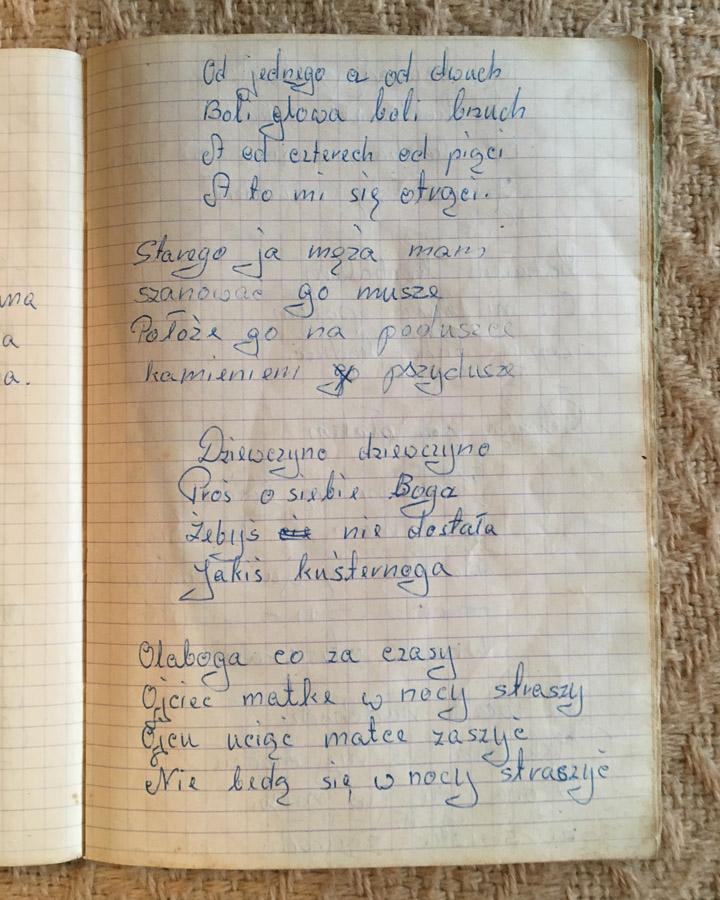 ma
a
a.
Od jednego a od dwuch
Boli głowa boli bruch
A od czterech od pięci
A to mi się otręci.
Starego ja męża mam,
szanować go muszę
Położe go na poduszce
kamieniem go pszydusze
Dziewczyno dziewczyno
Proś o siebie Boga
Żebyś nie dostała
Jakiś kuśternoga
Olaboga co za czasy
Ojciec matke w nocy straszy
Ojcu uciąć matce zaszyć
Nie będą się w nocy straszyć